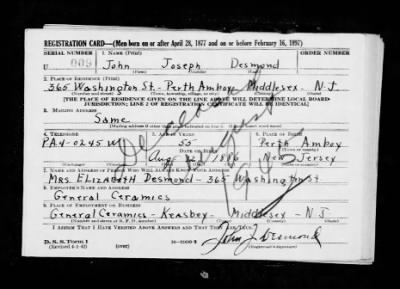 REGISTRATION CARD—(Men born on or after April 28, 1877 and on or before February 16, 1897)
SERIAL NUMBER 1. NAME (Print) ORDER NUMBER
U John Joseph Desmond
2. PLACE OF RESIDENCE (Print)
365 Washington St. - Perth Amboy Middlesex - N.J.
[THE PLACE OF RESIDENCE GIVEN ON THE LINE ABOVE WILL DETERMINE LOCAL BOARD
JURISDICTION; LINE 2 OF REGISTRATION CERTIFICATE WILL BE IDENTICAL]
3. MAILING ADDRESS
Same
4. TELEPHONE 5. AGE IN YEARS 6. PLACE OF BIRTH
PA4-0245W 55 Perth Amboy
DATE OF BIRTH
Aug 1886 New Jersey
7. NAME AND ADDRESS OF PERSON WHO WILL ALWAYS KNOW YOUR ADDRESS
Mrs. Elizabeth Desmond - 365 Washington st
8. EMPLOYER'S NAME AND ADDRESS
General Ceramics
9. PLACE OF EMPLOYMENT OR BUSINESS
General Ceramics - Keasbey - Middlesex - N J
I AFFIRM THAT I HAVE VERIFIED ABOVE ANSWERS AND THAT THEY ARE TRUE.
D. S. S. Form 1
John J. Desmond
Deceased